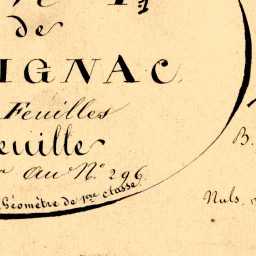 de
IGNAC.
Feuilles
euille
au N.º 296.
B.
Géomètre de 1ère classe.
Nuls.